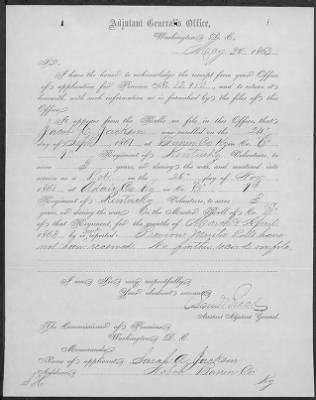 Adjutant General's Office,
Washington D. C.
May 28 1863
Sir:
I have the honor to acknowledge the receipt from your Office
of application for Pension No. and to return it
herewith, with such information as is furnished by the files of this
Office.
It appears from the Rolls on file in this Office, that
Jackson was enrolled on the 24th
day of Sept 1861 at Barren Co Ky in Co. C
9th Regiment of Kentucky Volunteers, to serve
3 years, or during the war, and mustered into
service as a on the 26th day of Nov
1861 at Adair Co Ky in Co. 9th
Regiment of Kentucky Volunteers, to serve 3
years, or during the war. On the Muster Roll of Co.
of that Regiment, for the months of March & April
1862 he is reported Previous Muster Rolls have
not been received. No further record on file
I am Sir, very respectfully,
Your obedient servant,
Assistant Adjutant General.
The Commissioner of Pensions
Washington, D. C.
Memoranda:
Name of applicant, Sarah Jackson
Address, Barren Co
Ky